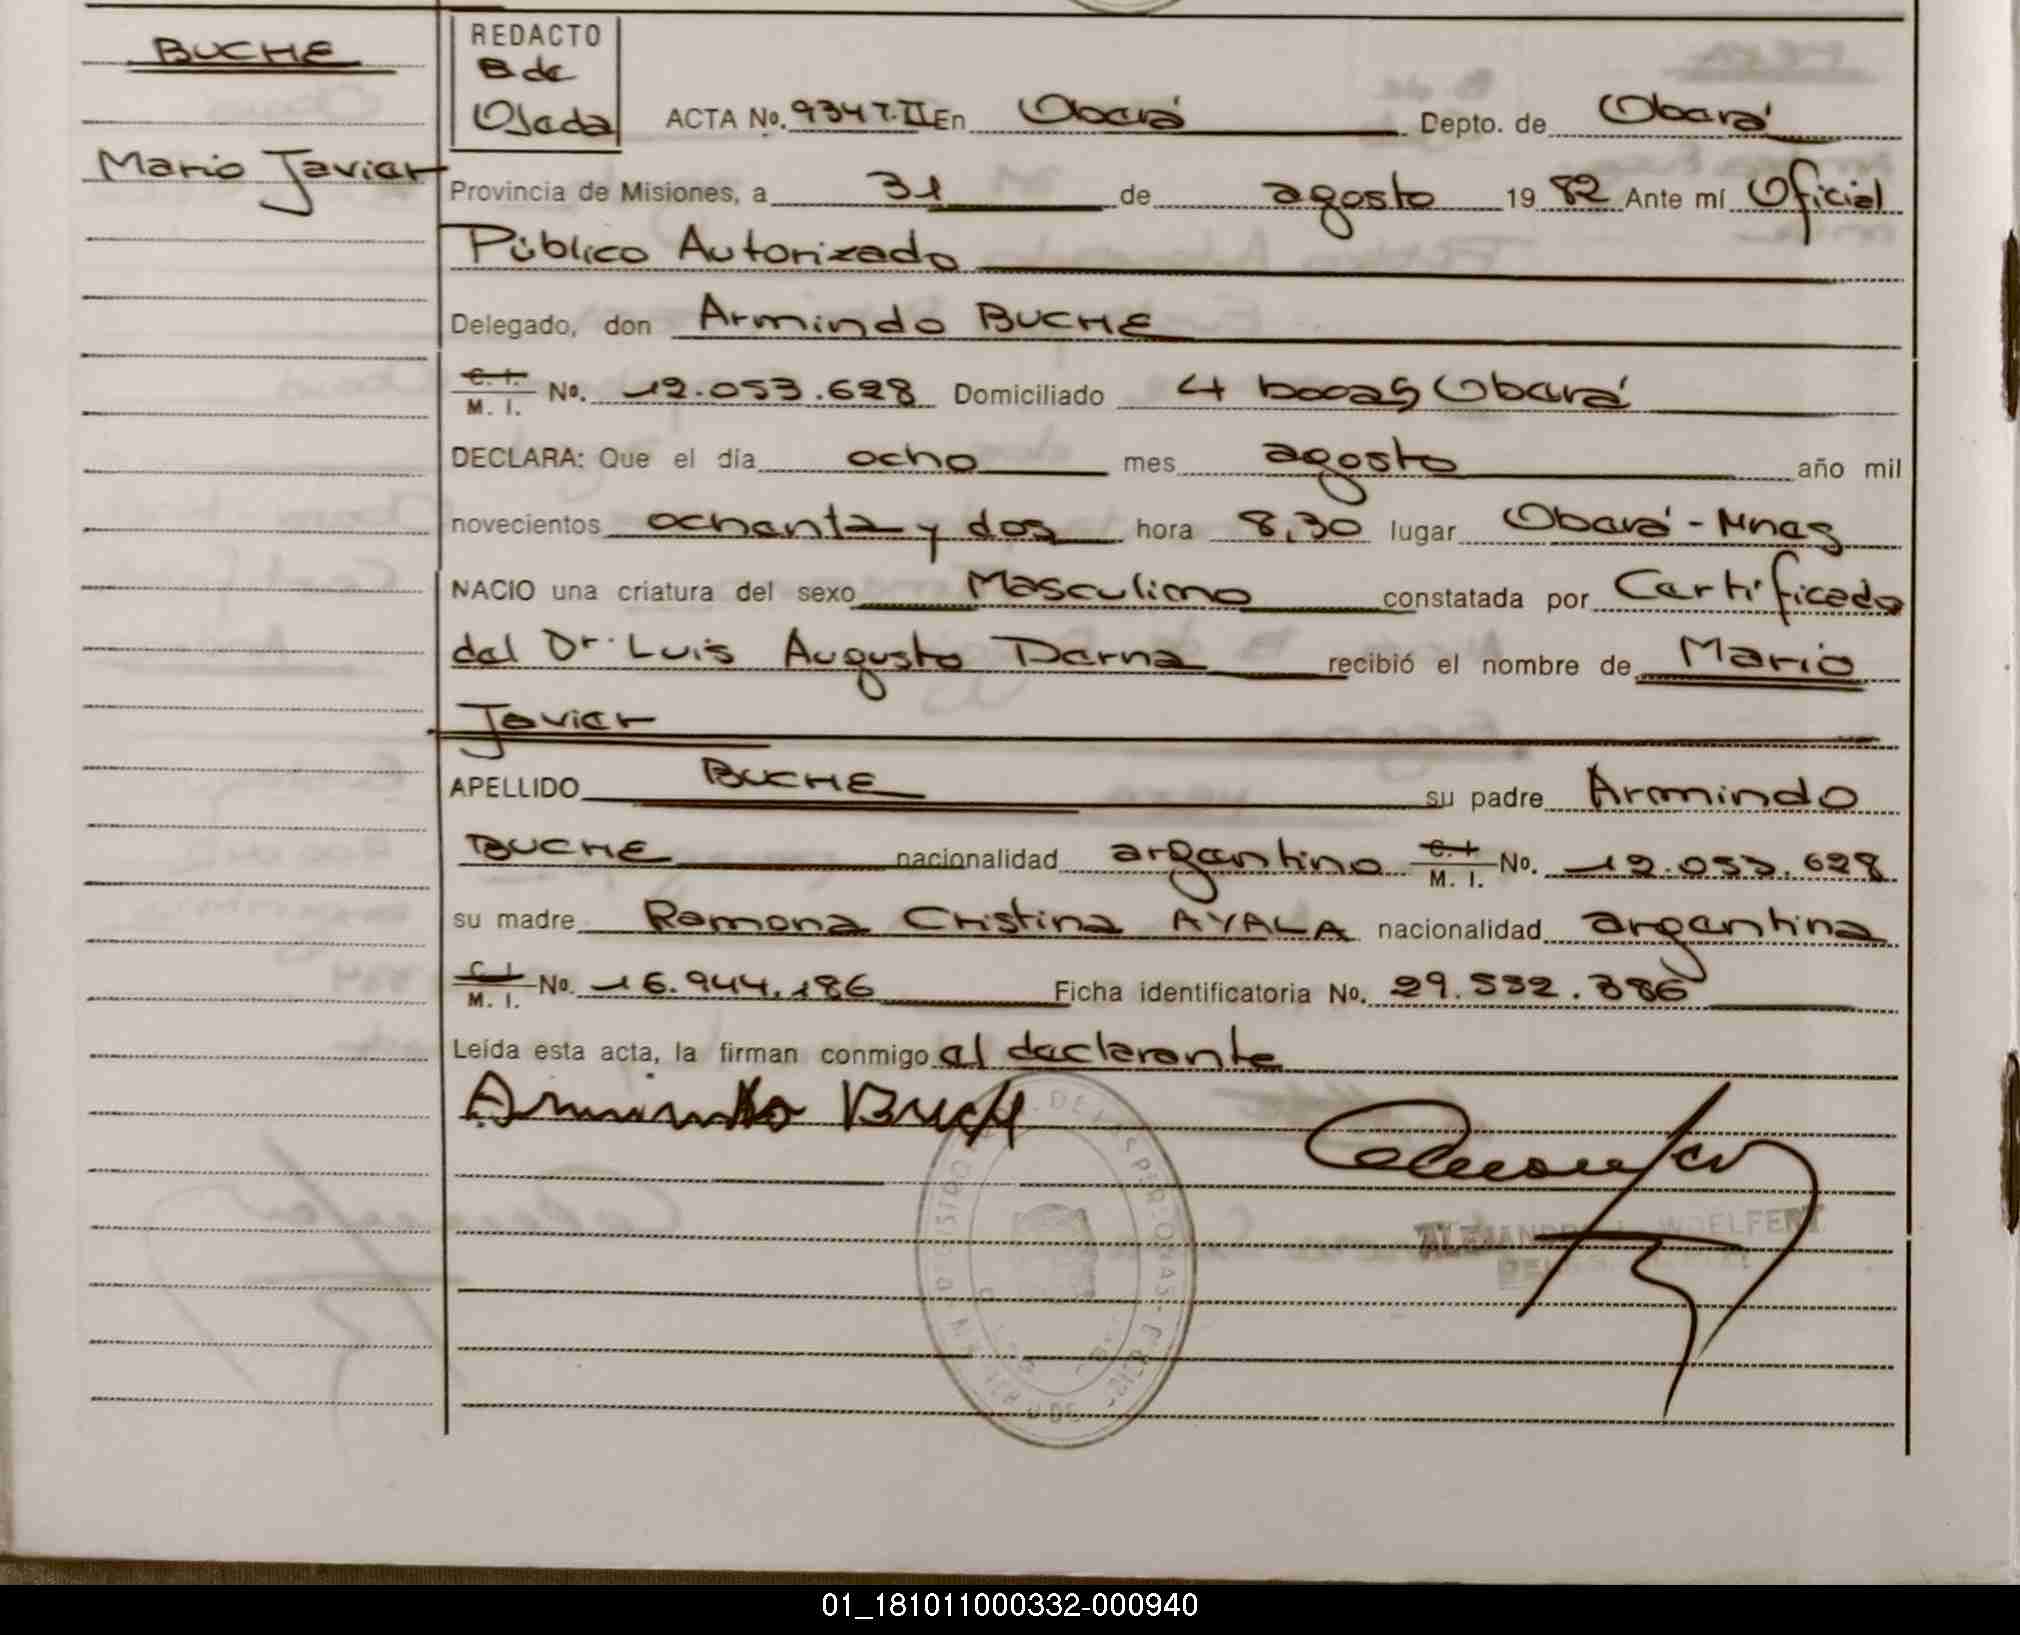 BUCHE
Mario Javier
REDACTO
B de
Ojeda
ACTA No. 934 T. II En Oberá Depto. de Oberá
Provincia de Misiones, a 31 de agosto 19 82 Ante mí Oficial
Público Autorizado
Delegado, don Armindo BUCHE
C. I. M. I. No. 12.053.628 Domiciliado 4 bocas Oberá
DECLARA: Que el día ocho mes agosto año mil
novecientos ochenta y dos hora 8,30 lugar Oberá - Mnes
NACIO una criatura del sexo Masculino constatada por Certificado
del Dr. Luis Augusto Derna recibió el nombre de Mario
Javier
APELLIDO BUCHE su padre Armindo
BUCHE nacionalidad argentino C. I. M. I. No. 12.053.628
su madre Ramona Cristina AYALA nacionalidad argentina
C. I. M. I. No. 16.944.186 Ficha identificatoria No. 29.532.386
Leída esta acta, la firman conmigo el declarante
Armindo Buch
WOELFERT
01_181011000332-000940